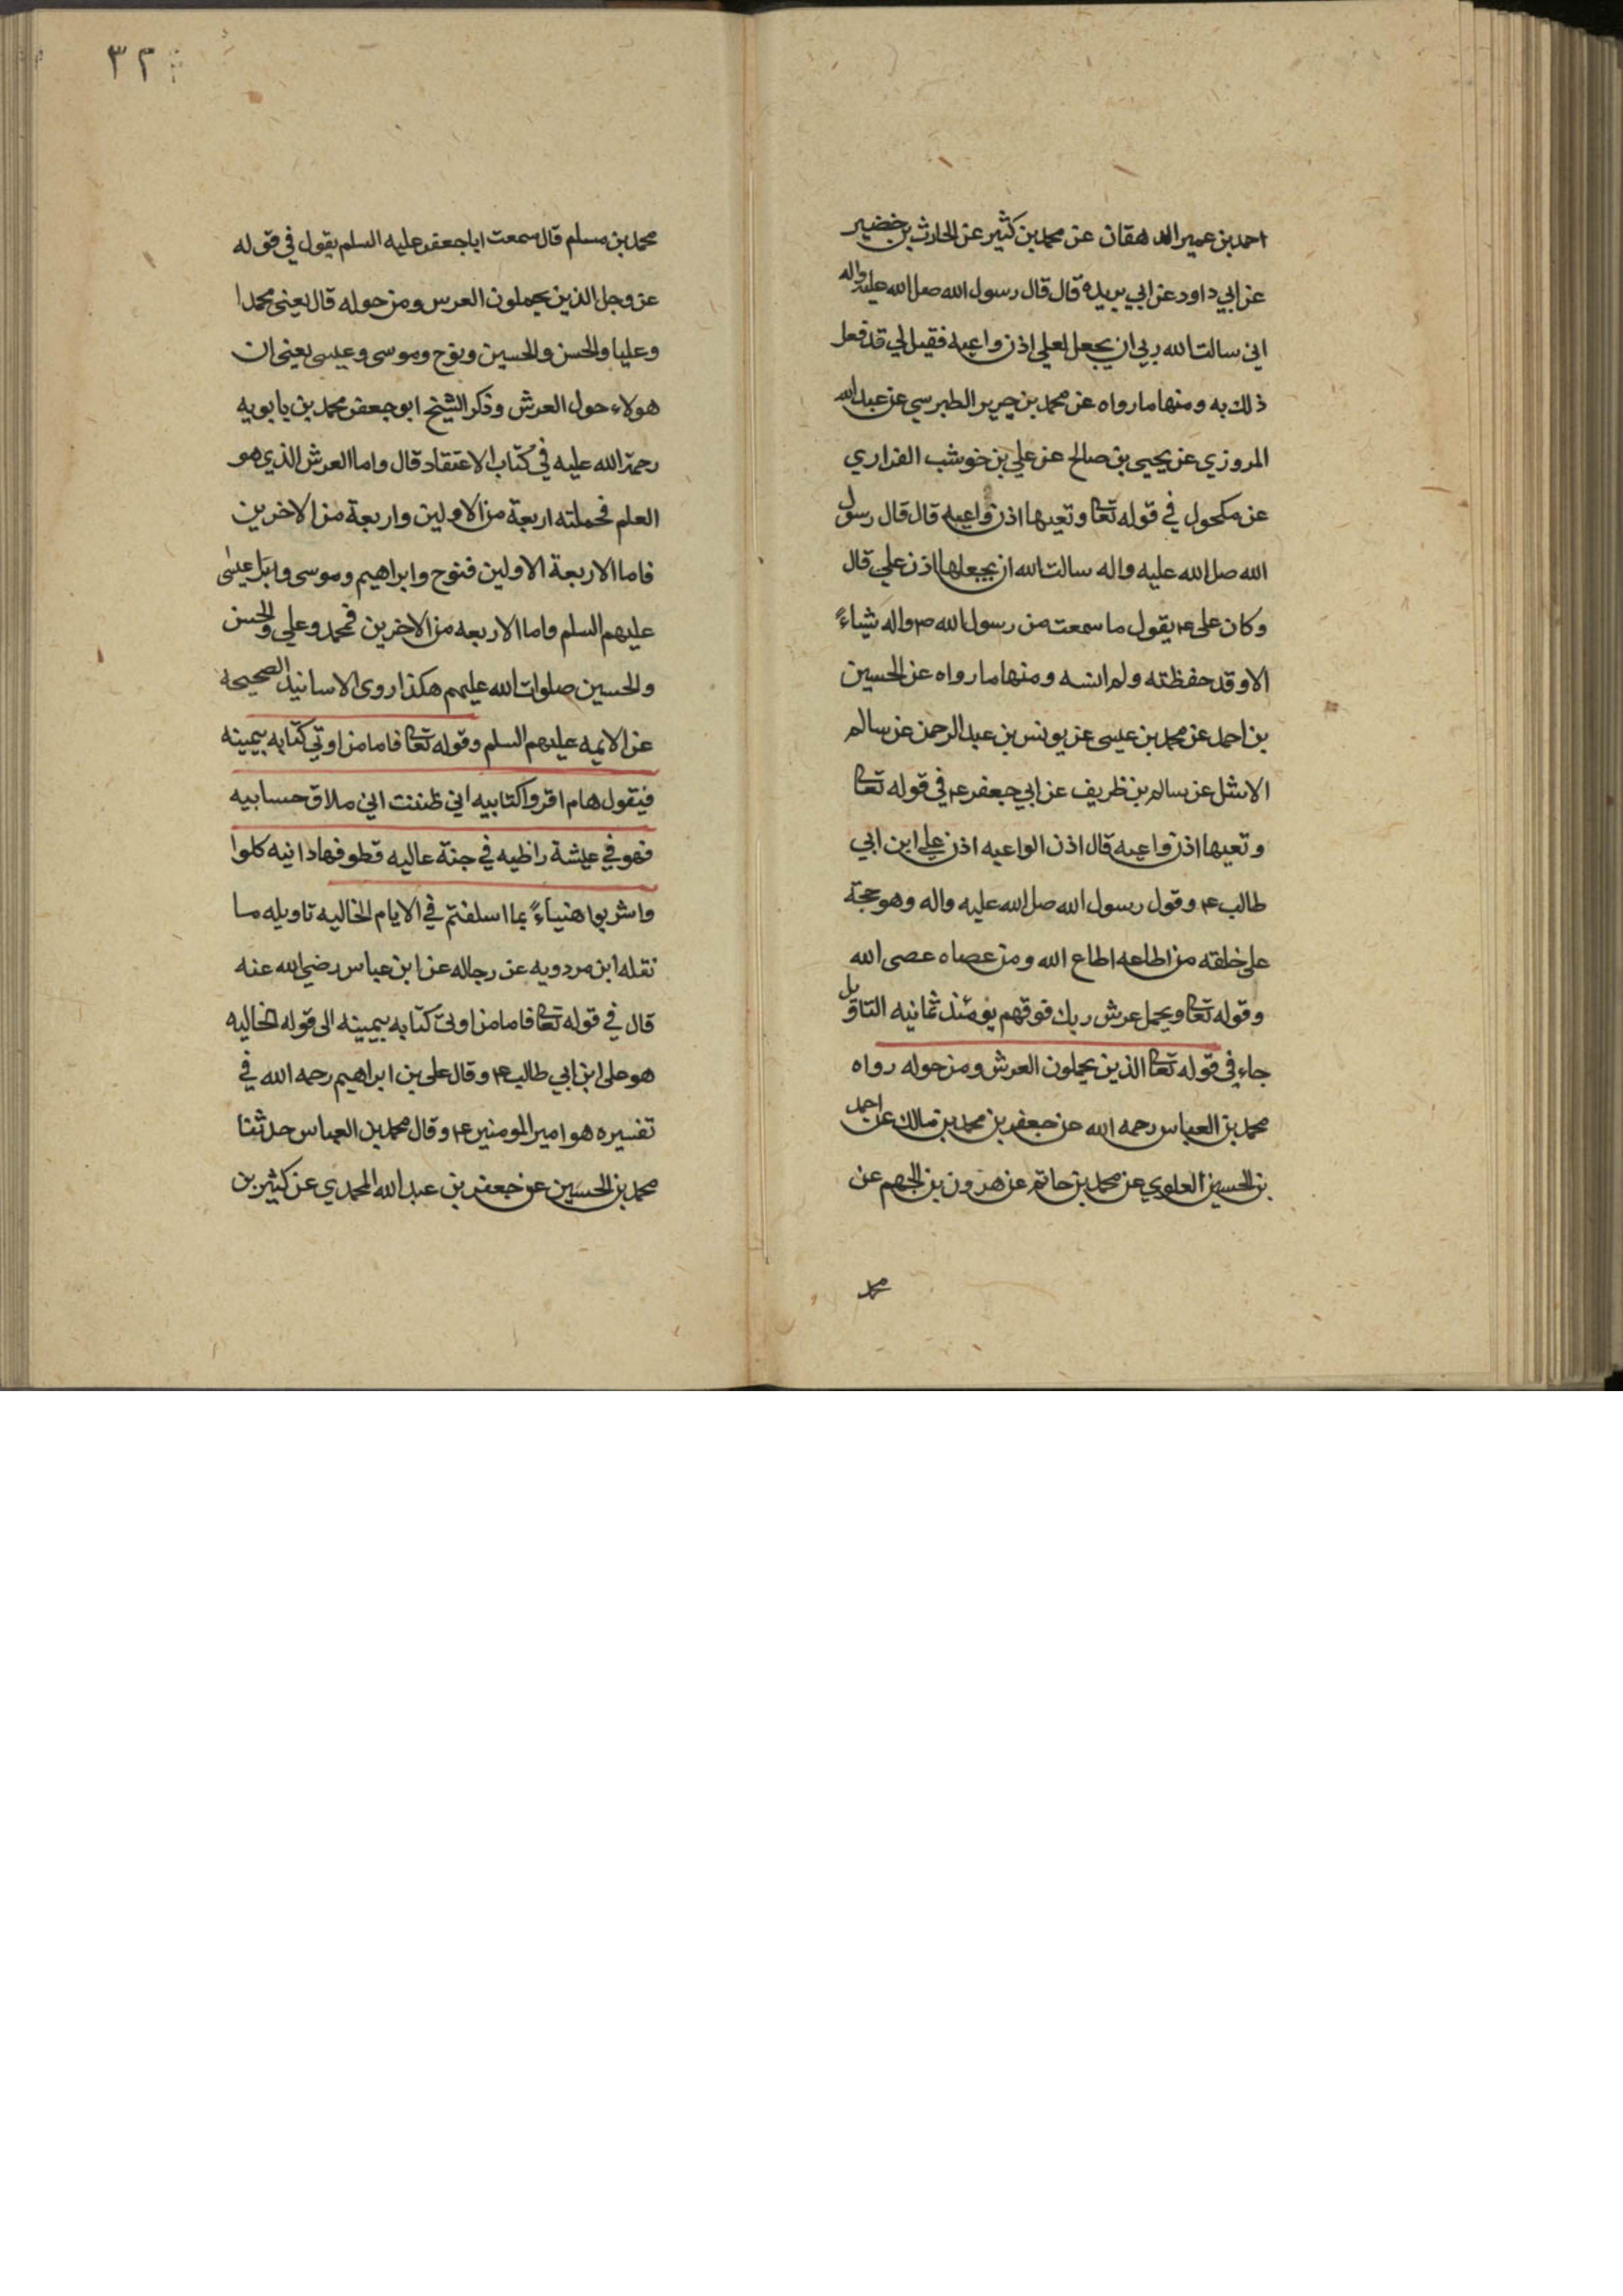 احمد بن عمير الدهقان عن محمد بن كثير عن الحارث بن خضير
عن ابي داود عن ابي بريده قال قال رسول الله صلى الله عليه واله
اني سالت الله ربي ان يجعل لعلي اذن واعيه فقيل لي قد فعل
ذلك به ومنها ما رواه عن محمد بن جرير الطبرسي عن عبد الله
المروزي عن يحيى بن صالح عن علي بن خوشب الفزاري
عن مكحول في قوله تعا وتعيها اذن واعيه قال قال رسول
الله صل الله عليه واله سالت الله ان يجعلها اذن علي قال
وكان علي ع يقول ما سمعت من رسول الله ص واله شياءً
الا وقد حفظته ولم انسه ومنها ما رواه عن الحسين
بن احمد عن محمد بن عيسى عن يونس بن عبد الرحمن عن سالم
الاشل عن سالم بن ظريف عن ابي جعفر ع في قوله تعا
وتعيها اذن واعيه قال اذن الواعيه اذن علي ابن ابي
طالب ع وقول رسول الله صل الله عليه واله وهو حجة
على خلقه من اطاعه اطاع الله ومن عصاه عصى الله
وقوله تعا ويحمل عرش ربك فوقهم يومئذ ثمانيه التاويل
جاء في قوله تعا الذين يحملون العرش ومن حوله رواه
محمد بن العباس رحمه الله عن جعفر بن محمد بن مالك عن احمد
بن الحسين العلوي عن محمد بن حاتم عن هرون بن الجهم عن
محمد
٣٢
محمد بن مسلم قال سمعت ابا جعفر عليه السلم يقول في قوله
عز وجل الذين يحملون العرس ومن حوله قال يعني محمدا
وعليا والحسن والحسين ونوح وموسى وعيسى يعني ان
هولاء حول العرش وذكر الشيخ ابو جعفر محمد بن بابويه
رحمة الله عليه في كتاب الاعتقاد قال واما العرش الذي هو
العلم فحملته اربعة من الاولين واربعة من الاخرين
فاما الاربعة الاولين فنوح وابراهيم وموسى وعيسى
عليهم السلم واما الاربعه من الاخرين فمحمد وعلي والحسن
والحسين صلوات الله عليهم هكذا روى الاسانيد الصحيحه
عن الائمه عليهم السلم وقوله تعا فاما من اوتي كتابه بيمينه
فيقول هام اقروا كتابيه اني ظننت اني ملاق حسابيه
فهو في عيشة راظيه في جنة عاليه قطوفها دانيه كلوا
واشربوا هنياءً بما اسلفتم في الايام الخاليه تاويله ما
نقله ابن مردويه عن رجاله عن ابن عباس رضي الله عنه
قال في قوله تعا فاما من اوتى كتابه بيمينه الى قوله الخاليه
هو على ابن ابي طالب ع وقال على بن ابراهيم رحمه الله في
تفسيره هو امير المومنين ع وقال محمد بن العباس حدثنا
محمد بن الحسين عن جعفر بن عبد الله المحمدي عن كثير بن